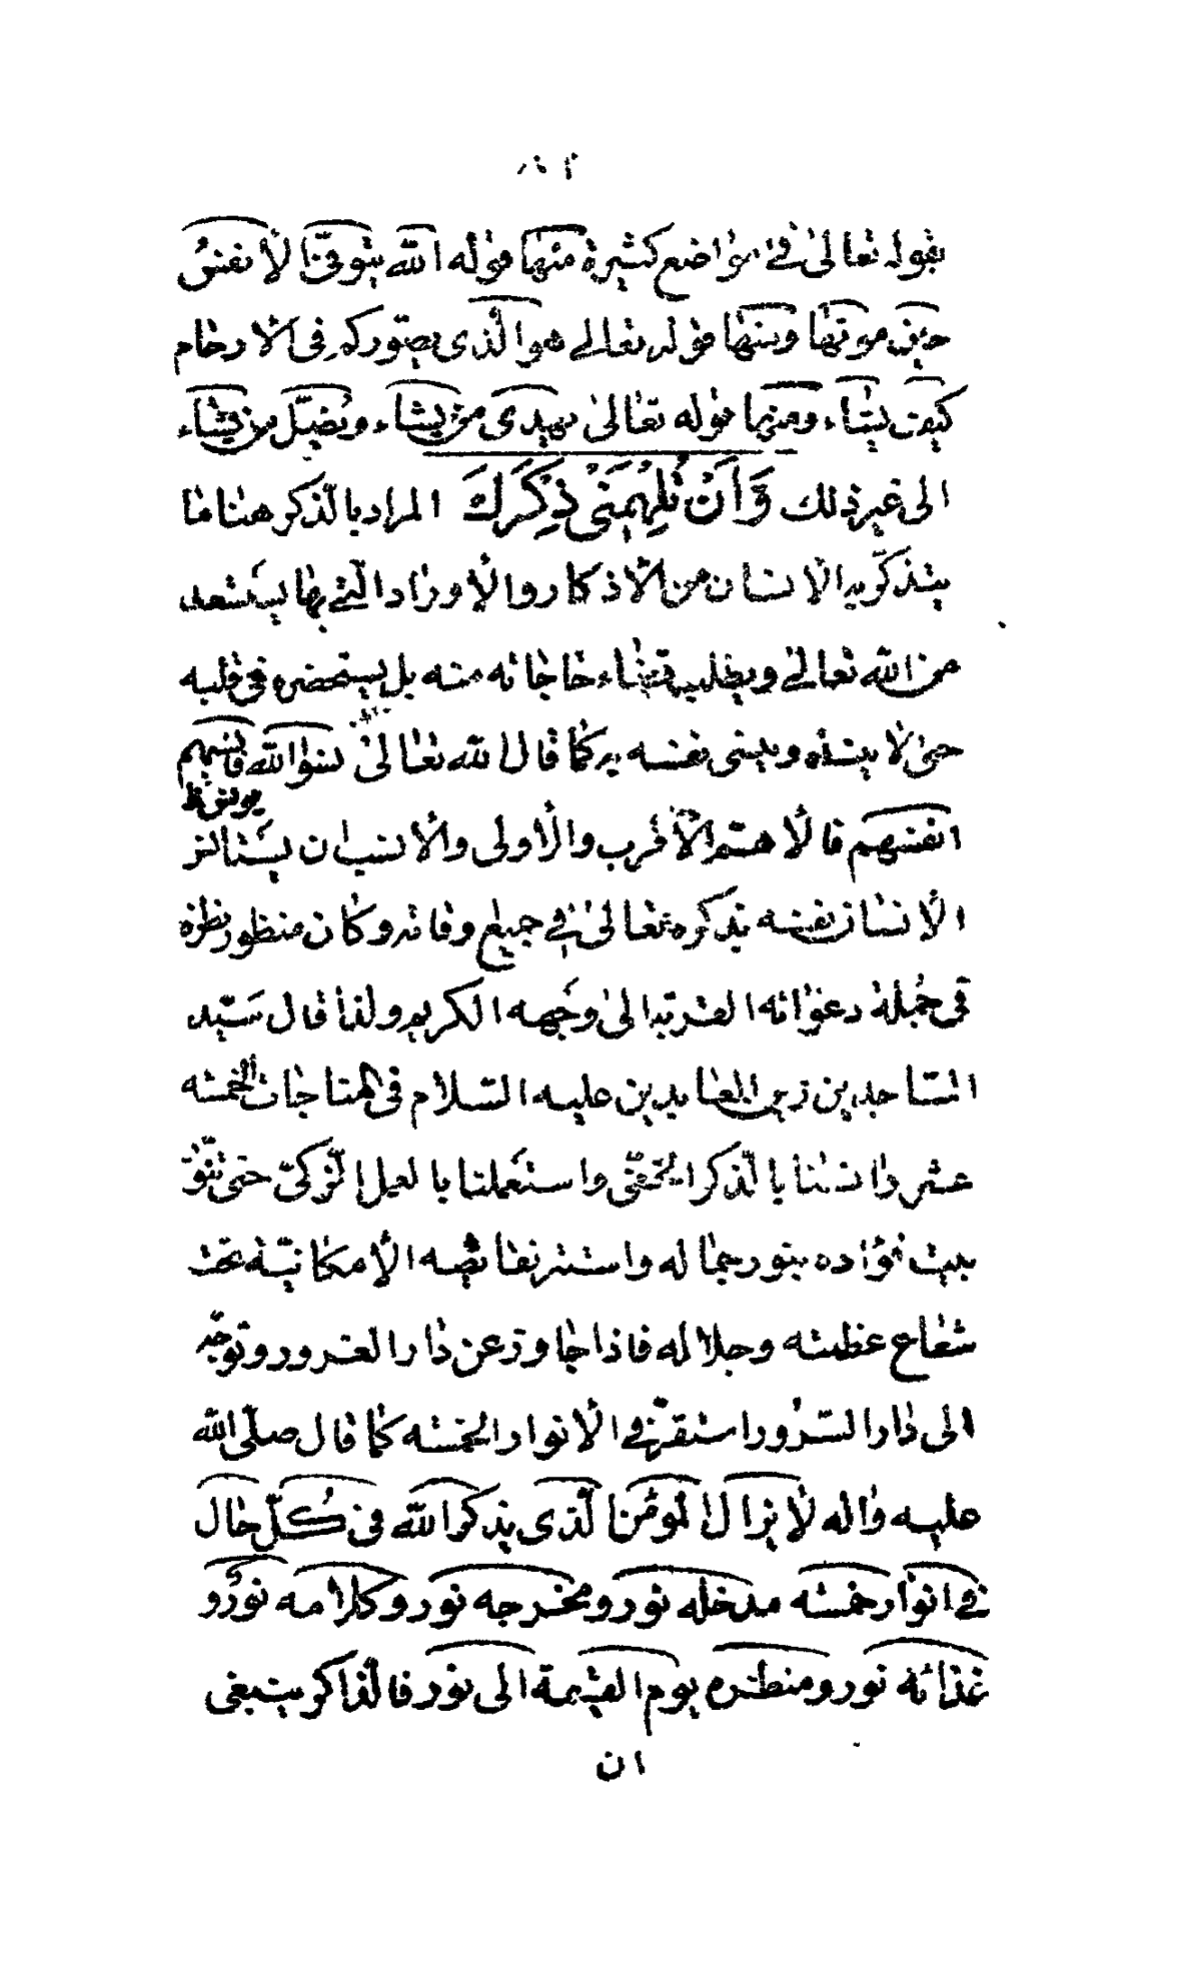 بقوله تعالى في مواضع كثيرة منها قوله الله يتوفى الأنفس
حين موتها ومنها قوله تعالى هو الذي يصوركم في الأرحام
كيف يشاء ومنها قوله تعالى يهدي من يشاء ويضل من يشاء
الى غير ذلك وَأَنْ تُلْهِمَنِي ذِكْرَكَ المراد بالذكر هنا ما
يتذكر به الانسان من الأذكار والأوراد التي بها يستعد
من الله تعالى ويطلب قضاء حاجاته منه بل يستحضره في قلبه
حتى لا ينساه وينسى نفسه كما قال الله تعالى نسوا الله فانسيهم
انفسهم فالأهم الأقرب والأولى والأنسب ان يستأنس
الانسان نفسه بذكره تعالى في جميع اوقاته وكان منظور نظره
في جملة دعواته القربة الى وجهه الكريم ولذا قال سيد
الساجدين زين العابدين عليه السلام في المناجات الخمسه
عشر وانسنا بالذكر الخفي واستعملنا بالعمل الزكي حتى
بيت فؤاده بنور جماله واستتر نقائصه الإمكانية تحت
شعاع عظمته وجلاله فاذا جاوز عن دار الغرور وتوجه
الى دار السرور استقر في الأنوار الخمسه كما قال صلى الله
عليه واله لا يزال المؤمن الذي يذكر الله في كل حال
في انوار خمسه مدخله نور ومخرجه نور وكلامه نور و
غذائه نور ومنظره يوم القيمة الى نور فالذاكر ينبغي
ان